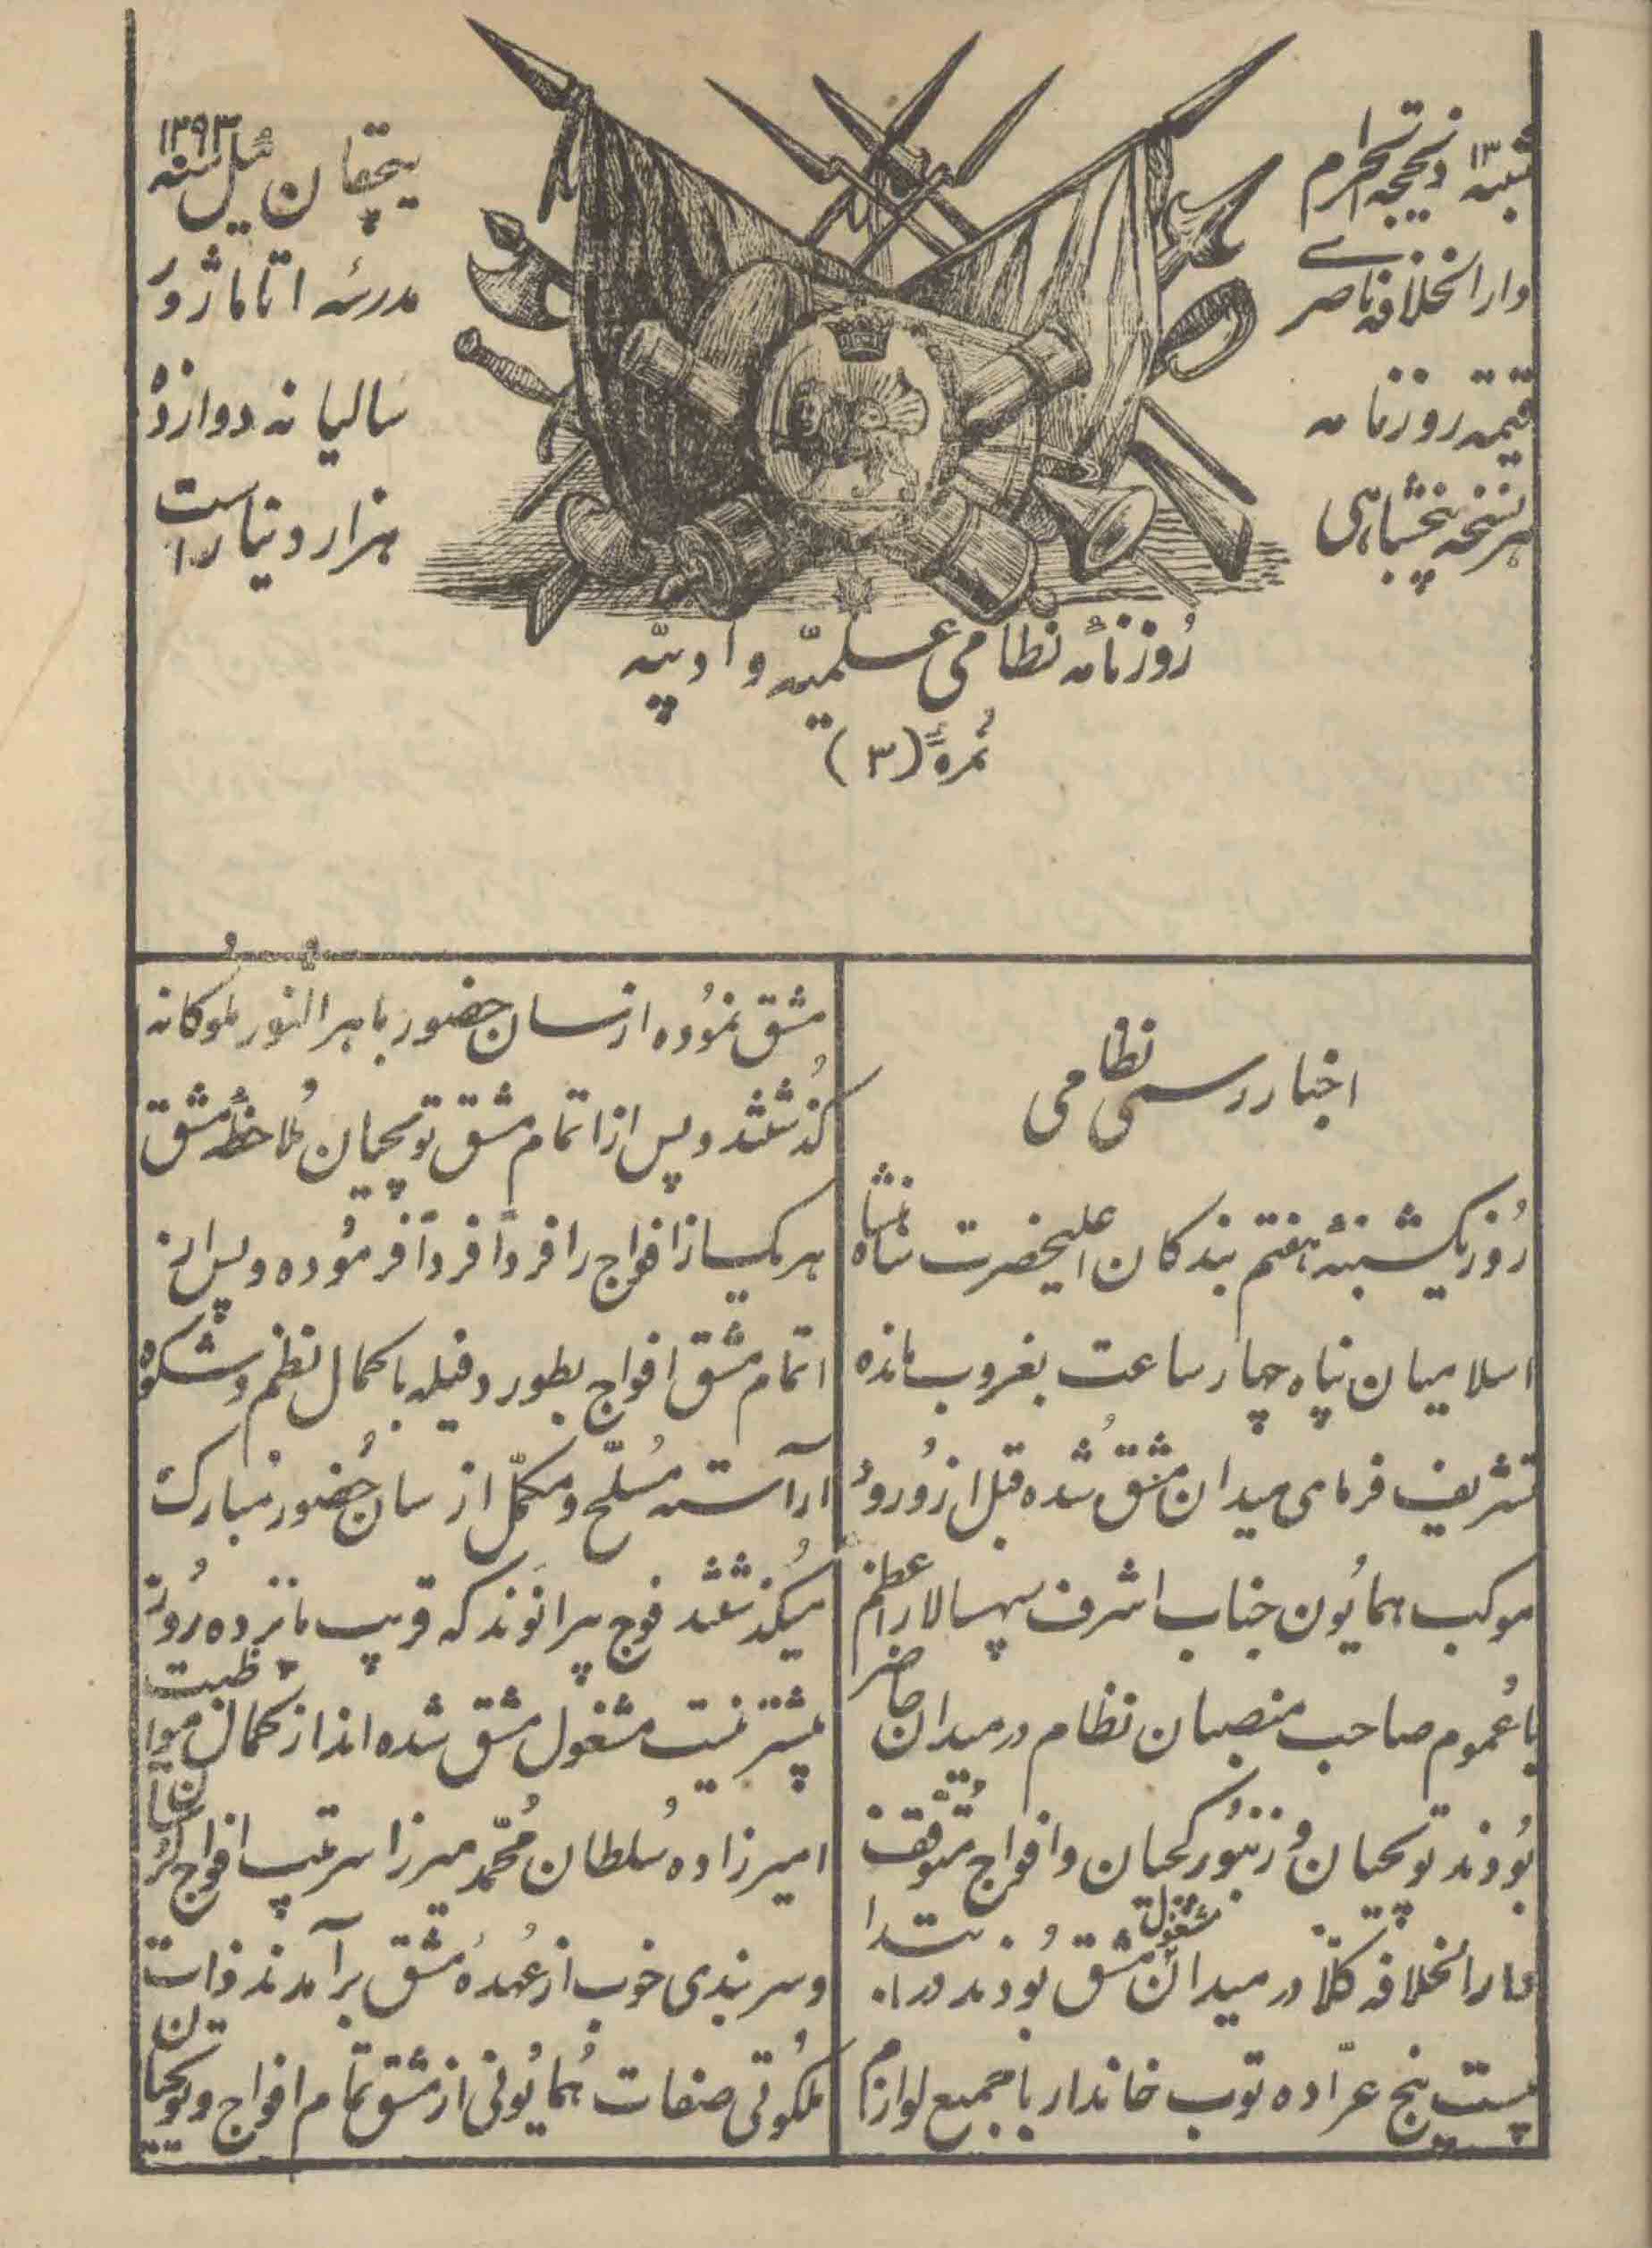 شنبه ۱۳ ذیحجه‌الحرام
دارالخلافه ناصری
قیمة روزنامه
هر نسخه پنجشاهی
سیچقان ئیل سنه ۱۲۹۳
مدرسه اتاماژور
سالیانه دوازده
هزار دینار است
روزنامهٔ نظامی علمیّه و ادبیّه
نمرهٔ (۳)
اخبار رسمی نظامی
روز یکشنبه هفتم بندکان اعلیحضرت شاهنشاه
اسلامیان پناه چهار ساعت بغروب مانده
تشریف فرمای میدان مشق شده قبل از ورود
موکب همایون جناب اشرف سپهسالار اعظم
با عموم صاحب منصبان نظام در میدان حاضر
بودند توپچیان و زنبورکچیان و افواج متوقف
دارالخلافه کلّا در میدان مشغول مشق بودند در ابتدا
بیست پنج عرّاده توپ خاندار با جمیع لوازم
مشق نموده از سان حضور باهرالنور ملوکانه
کذشتند و پس از اتمام مشق توپچیان ملاحظهٔ مشق
هر یک از افواج را فرداً فرداً فرموده و پس از
اتمام مشق افواج بطور دفیله با کمال نظم و شکوه
آراسته مسلّح و مکمّل از سان حضور مبارک
میکذشتند فوج بیرانوند که قریب پانزده روز
بیشتر نیست مشغول مشق شده‌اند از کمال مواظبت
امیرزاده سلطان محمّد میرزا سرتیپ افواج لرستان
و سربندی خوب از عهده مشق برآمدند ذات
ملکوتی صفات همایونی از مشق تمام افواج و توپچیان